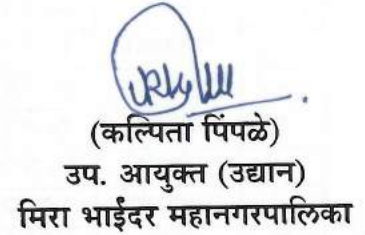 (कल्पिता पिंपळे)
उप. आयुक्त (उद्यान)
मिरा भाईंदर महानगरपालिका